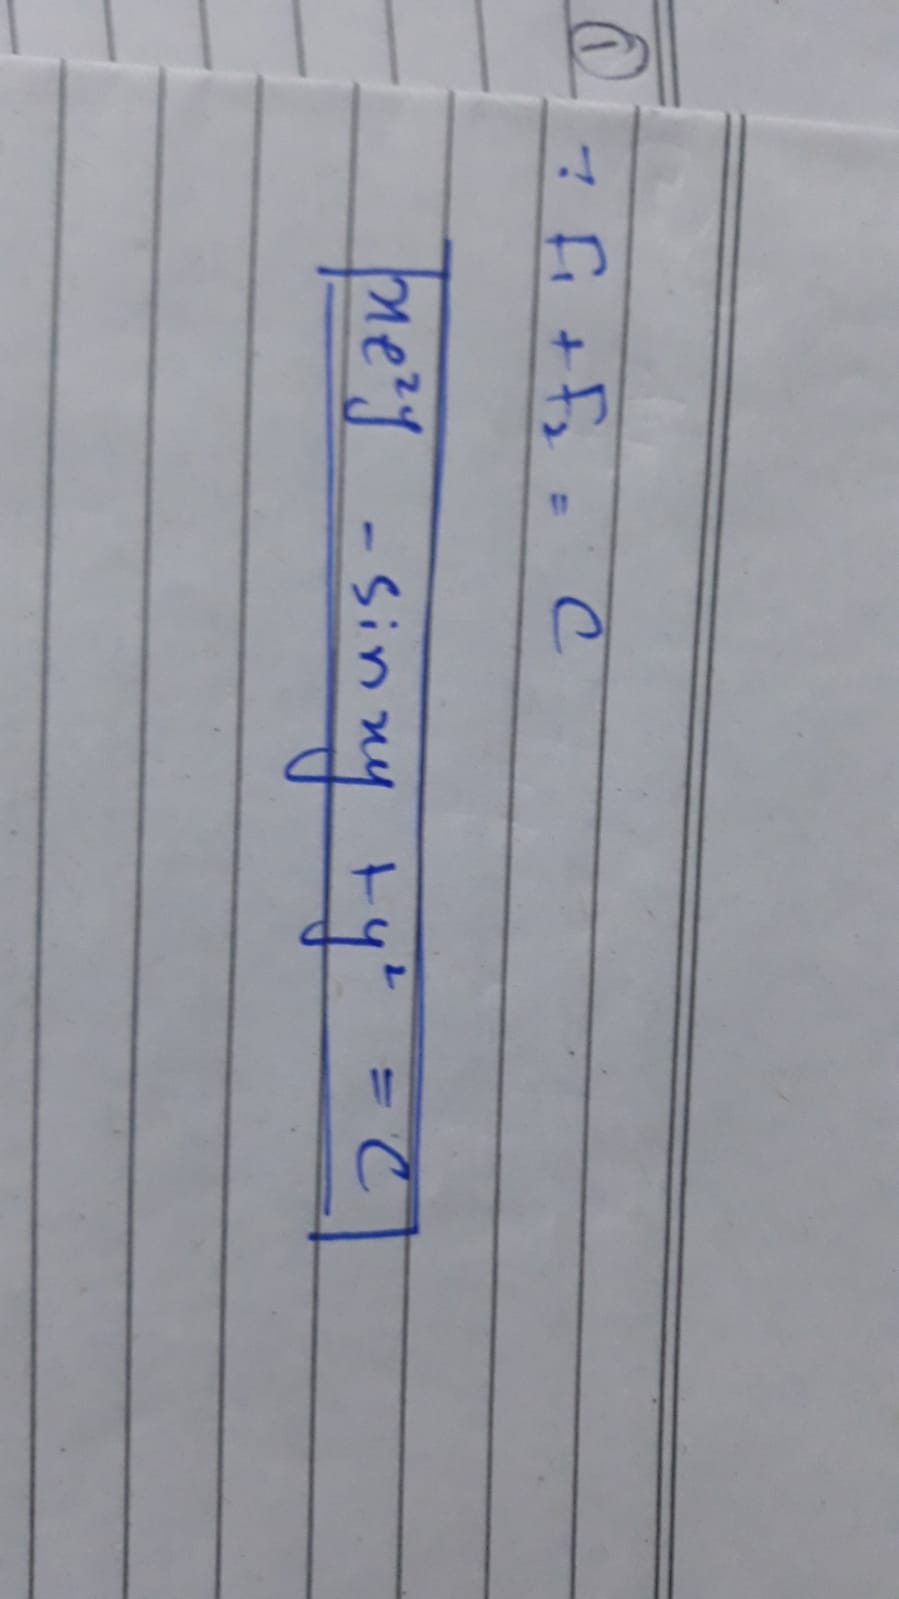 ①
∵ F₁ + F₂ = C
xe²ʸ - Sin xy + y² = C